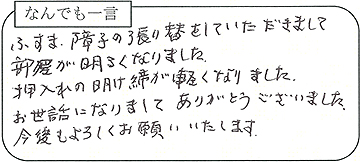 なんでも一言
ふすま、障子の張り替をしていただきまして
部屋が明るくなりました。
押入れの明け締が軽くなりました。
お世話になりまして ありがとうございました。
今後もよろしくお願いいたします。